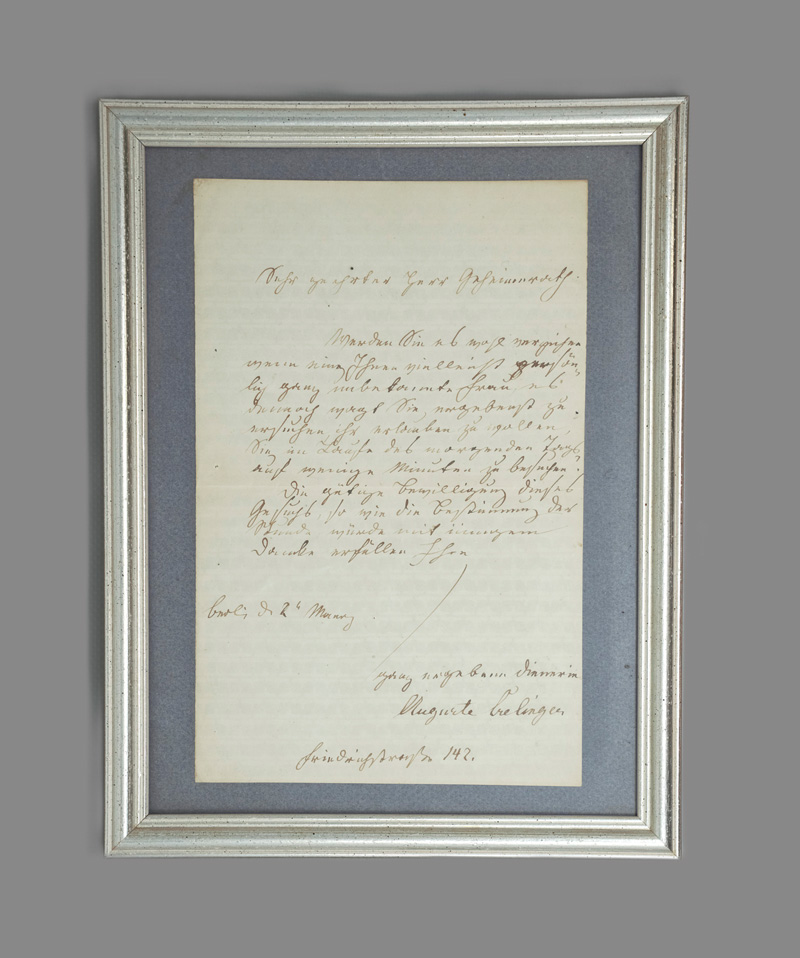 Sehr geehrter Herr Geheimerath.
Werden Sie es wohl verzeihen
wenn eine Ihnen vielleicht persön
lich ganz unbekannte Frau, es
dennoch wagt Sie, ergebenst zu
ersuchen ihr erlauben zu wollen,
Sie im Laufe des morgenden Tags
auf wenige Minuten zu besuchen?
Die gütige Bewilligung dieses
Gesuchs, so wie die Bestimmung der
Stunde würde mit innigem
Danke erfüllen Ihre
Berlin d 2t Maerz
ganz ergebene Dienerin
Auguste Crelinger
Friedrichstrasse 142.